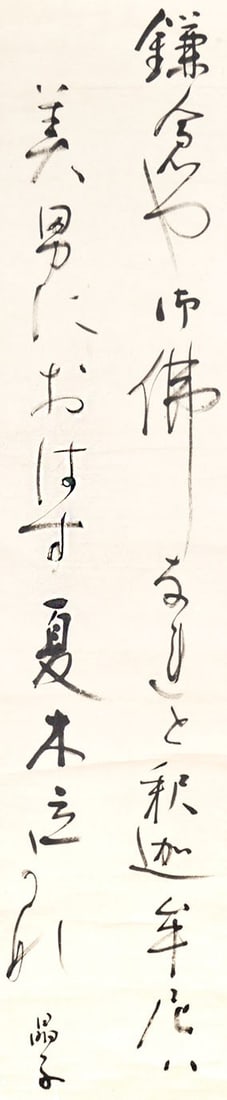 鎌倉や御佛なれと釈迦牟尼ハ
美男におはす夏木立かな
晶子